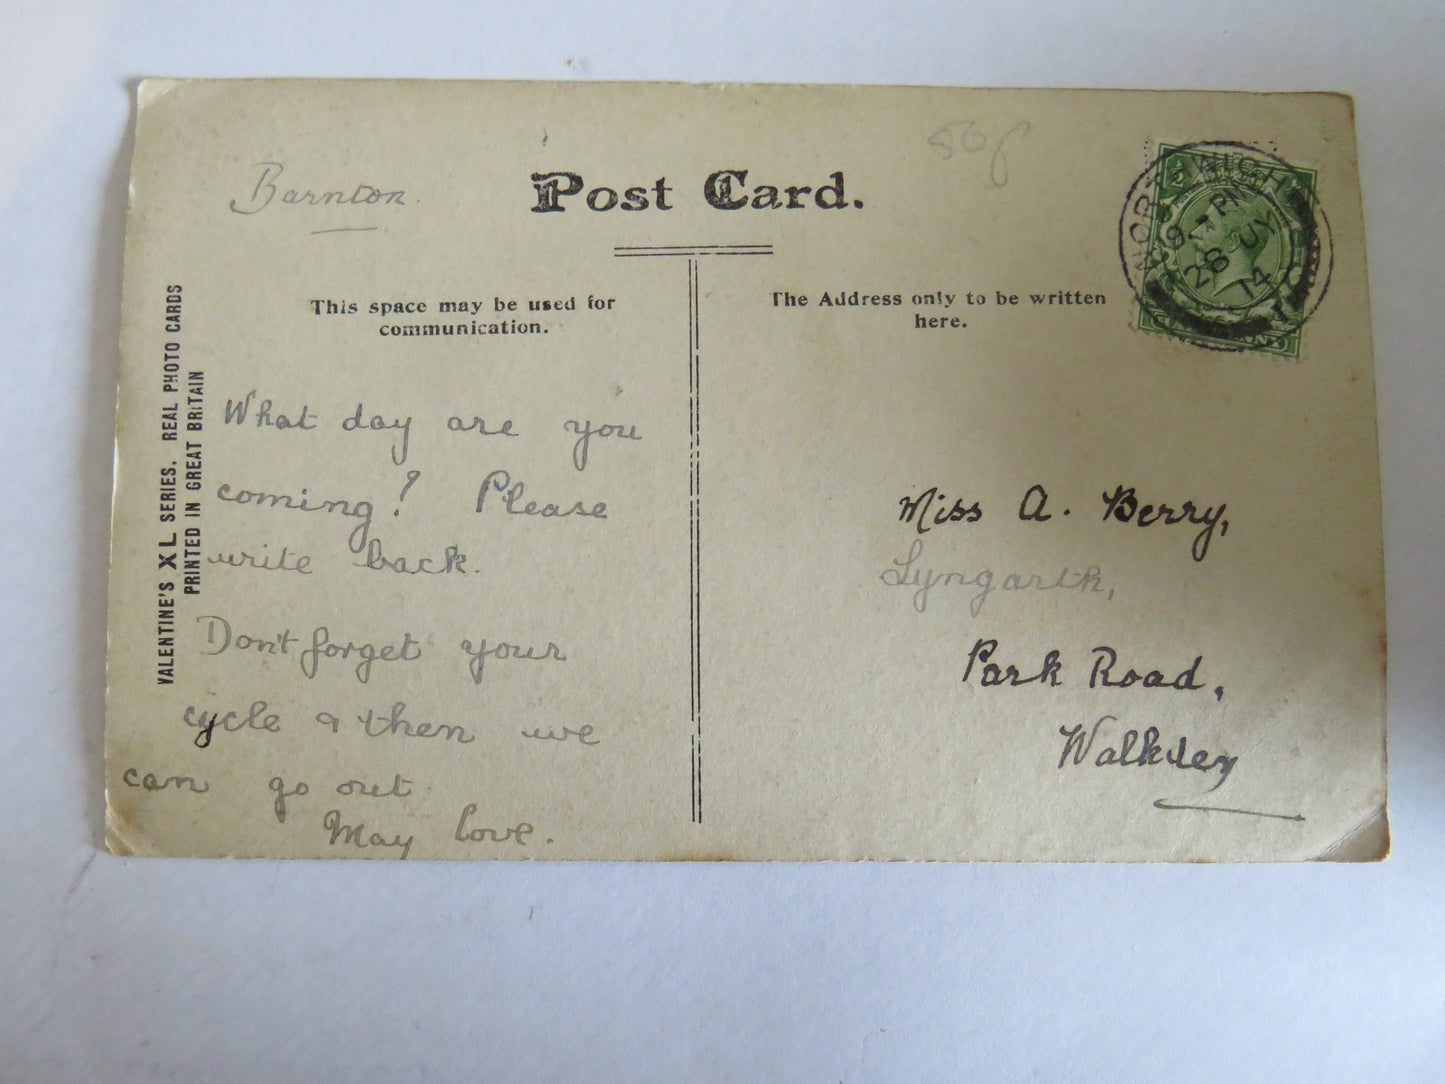 Barnton.
Post Card.
This space may be used for
communication.
The Address only to be written
here.
VALENTINE'S XL SERIES. REAL PHOTO CARDS
PRINTED IN GREAT BRITAIN
What day are you
coming? Please
write back.
Don't forget your
cycle & then we
can go out
May love.
NORTHWICH
PM
28 JY
14
Miss A. Berry,
Lyngarth,
Park Road,
Walkden